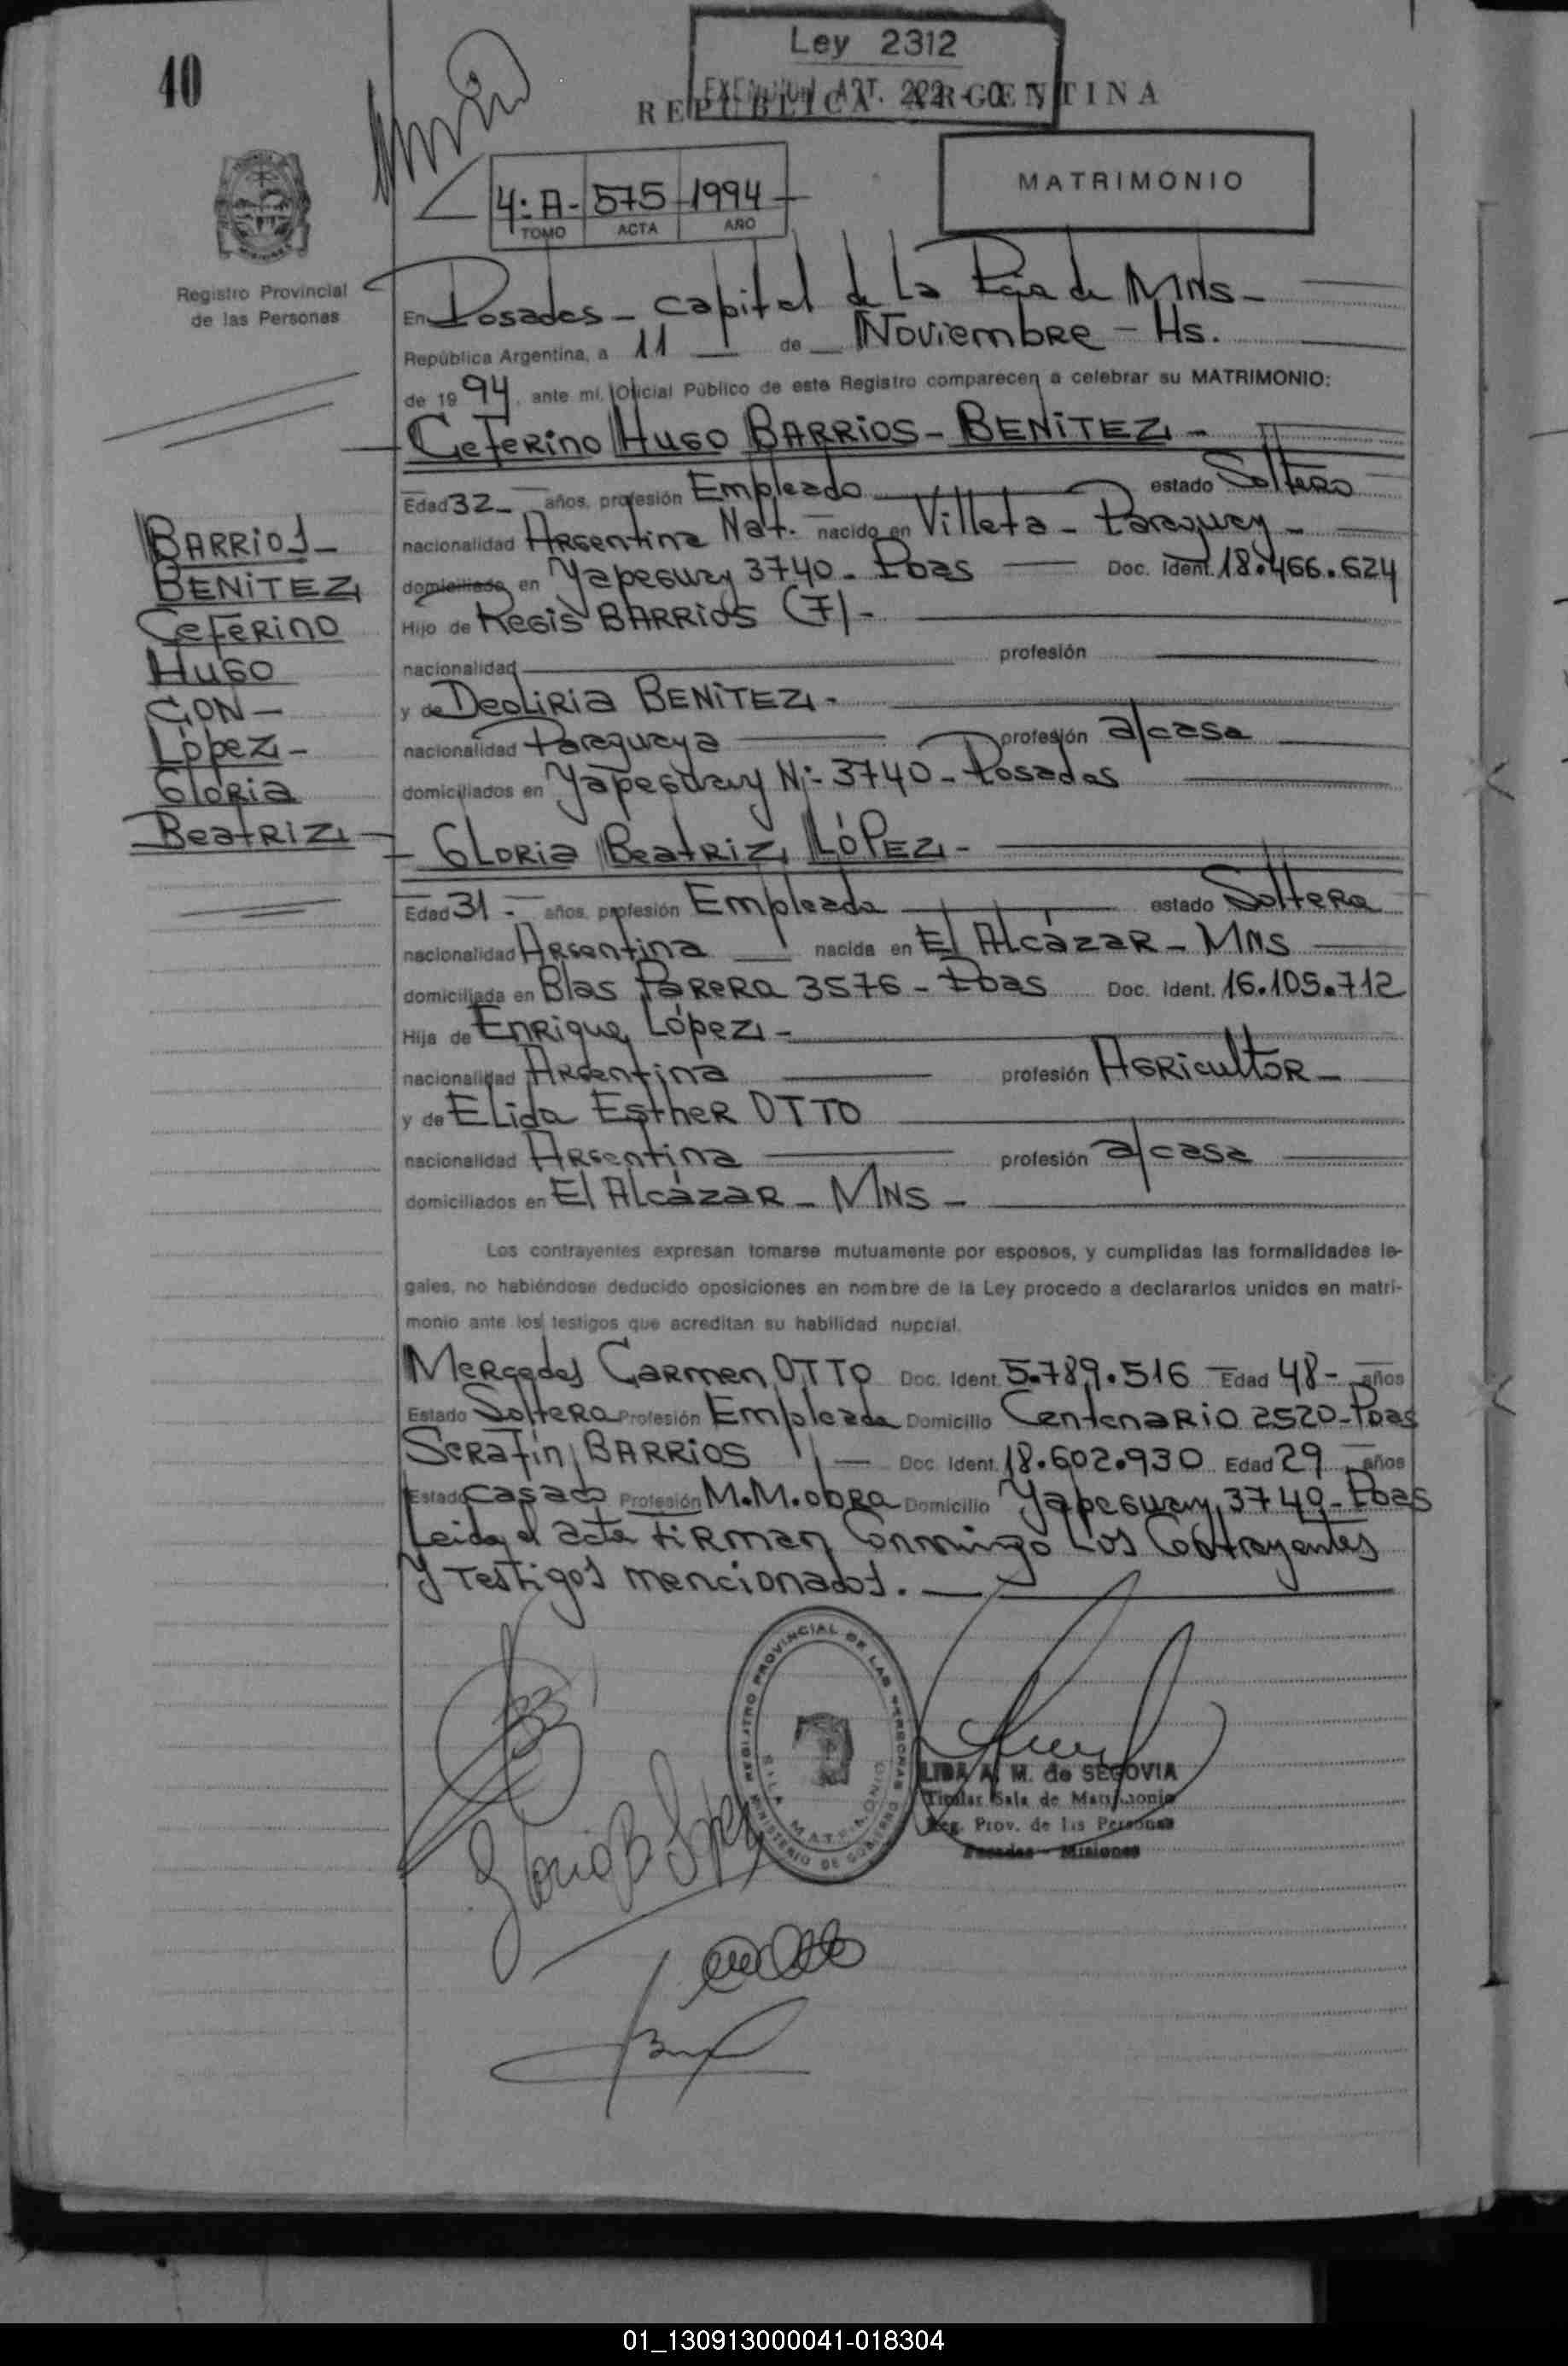 40
Ley 2312
REPUBLICA ARGENTINA
MATRIMONIO
4:A- 575 1994
TOMO ACTA AÑO
Registro Provincial
de las Personas
En Posadas - capital de La Pcia de MNS-
República Argentina, a 11 de Noviembre - Hs.
de 1994, ante mí, Oficial Público de este Registro comparecen a celebrar su MATRIMONIO:
Ceferino Hugo BARRIOS - BENITEZ -
Edad 32 - años, profesión Empleado estado Soltero
nacionalidad Argentina Nat. nacido en Villeta - Paraguay -
domiciliado en Yapeguay 3740 - Pdas Doc. Ident. 18.466.624
Hijo de Regis BARRIOS (F) -
nacionalidad profesión
y de Deoliria BENITEZ -
nacionalidad Paraguaya profesión a/casa
domiciliados en Yapeguay N:- 3740 - Posadas
BARRIOS -
BENITEZ
Ceferino
Hugo
CON -
López -
Gloria
Beatriz
- Gloria Beatriz LÓPEZ -
Edad 31 - años, profesión Empleada estado Soltera
nacionalidad Argentina nacida en El Alcázar - MNS
domiciliada en Blas Parera 3576 - Pdas Doc. Ident. 16.105.712
Hija de Enrique López -
nacionalidad Argentina profesión Agricultor -
y de Elida Esther OTTO
nacionalidad Argentina profesión a/casa
domiciliados en El Alcázar - MNS -
Los contrayentes expresan tomarse mutuamente por esposos, y cumplidas las formalidades le-
gales, no habiéndose deducido oposiciones en nombre de la Ley procedo a declararlos unidos en matri-
monio ante los testigos que acreditan su habilidad nupcial.
Mercedes Carmen OTTO Doc. Ident. 5.789.516 Edad 48 - años
Estado Soltera Profesión Empleada Domicilio Centenario 2520 - Pdas
Serafín BARRIOS Doc. Ident. 18.602.930 Edad 29 años
Estado casado Profesión M.M.obra Domicilio Yapeguay 3740 - Pdas
Leida el acta firman Conmingo Los Contrayentes
Y Testigos mencionados.
REGISTRO PROVINCIAL DE LAS PERSONAS
SALA MATRIMONIO
MINISTERIO DE GOBIERNO
LIDA A. M. de SEGOVIA
Titular Sala de Matrimonio
Reg. Prov. de las Personas
Posadas - Misiones
Gloria B López
01_130913000041-018304